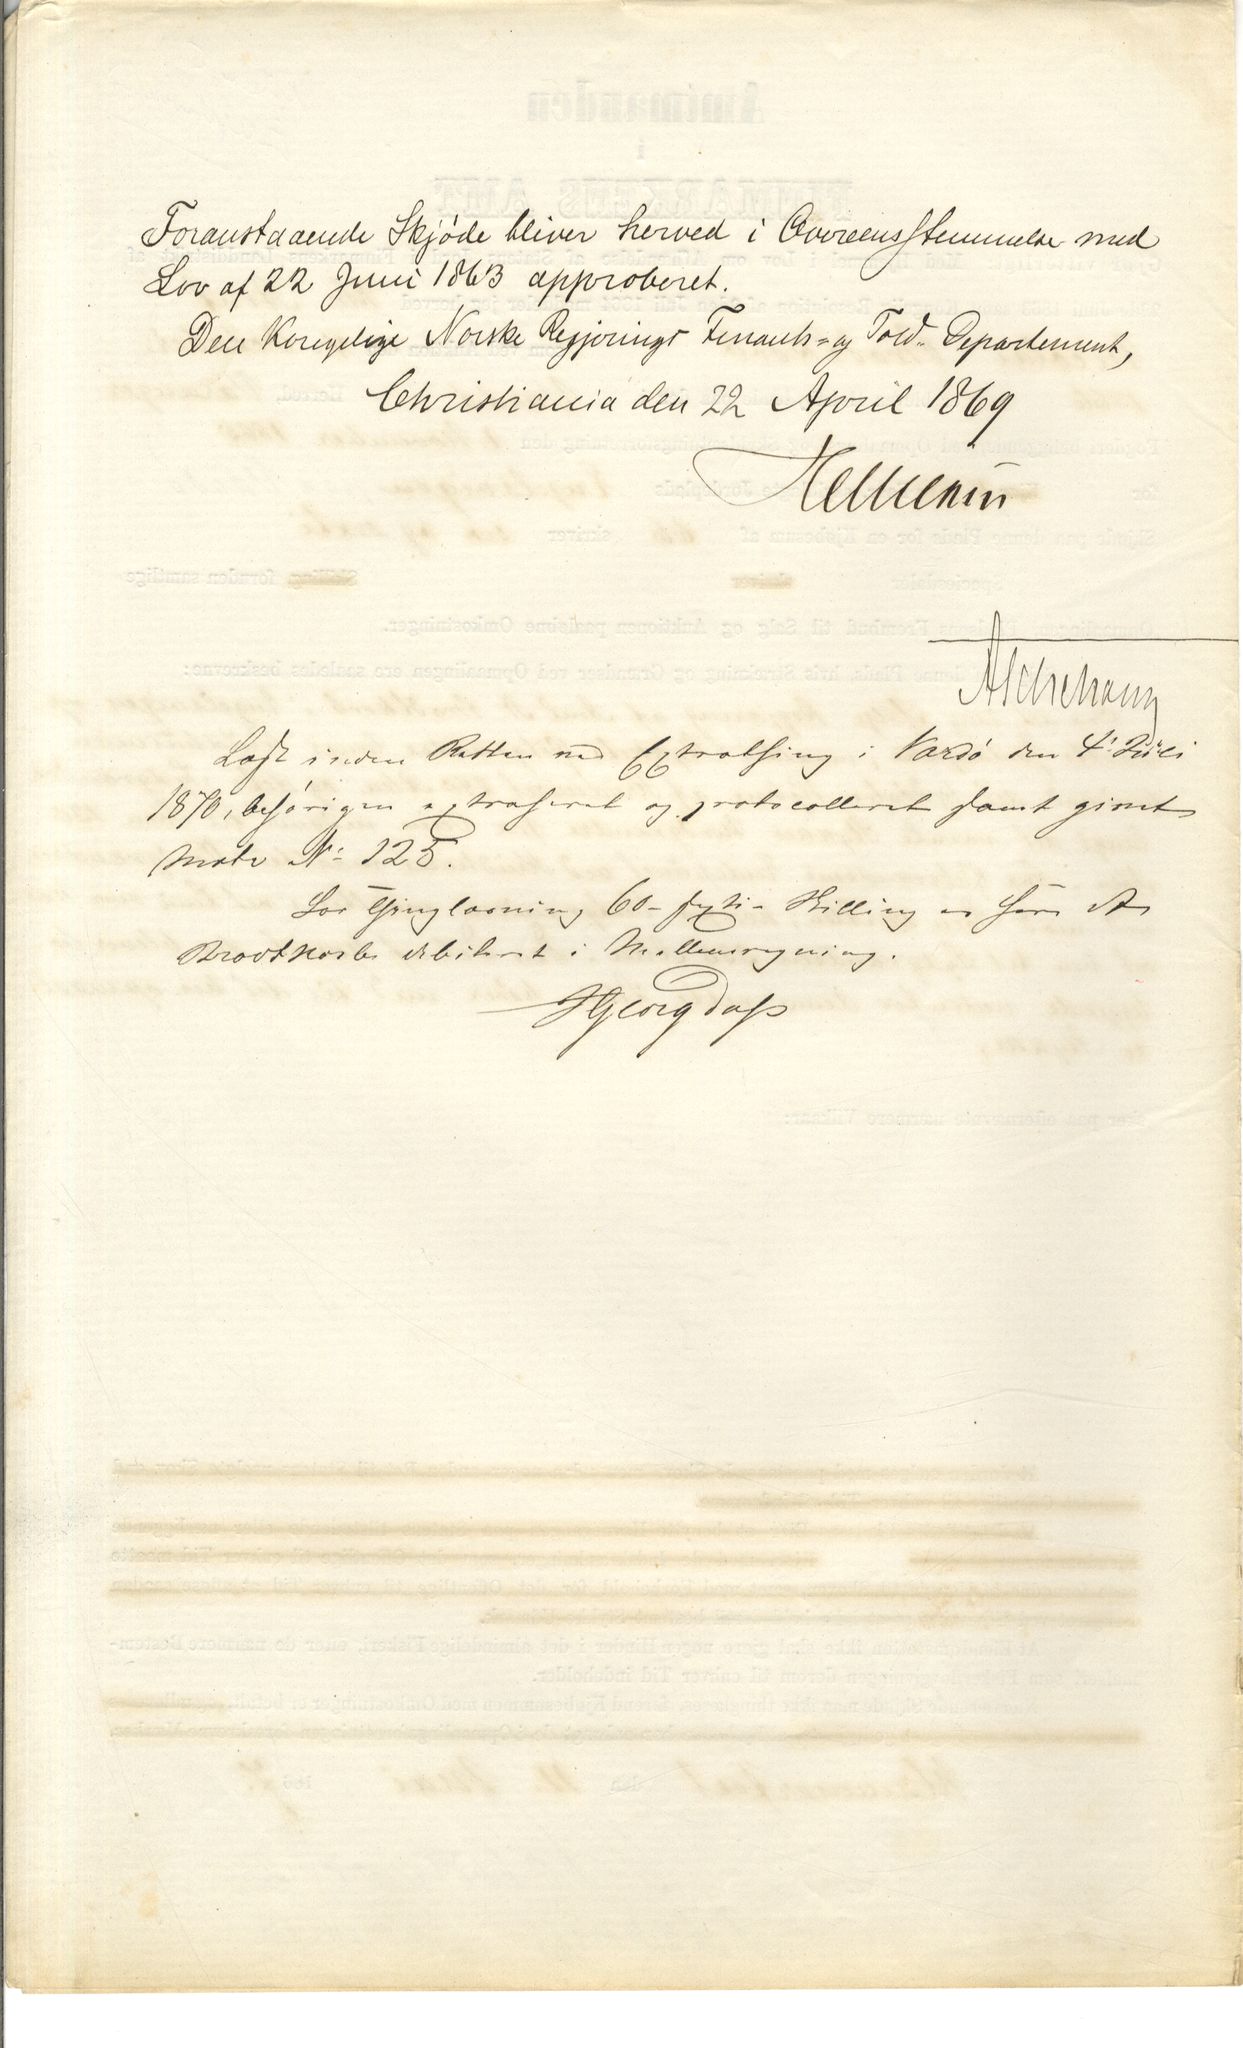 Foranstaaende Skjøde bliver herved i Overeensstemmelse med
Lov af 22 Juni 1863 approberet.
Den Kongelige Norske Regjerings Finants- og Told-Departement,
Christiania den 22 April 1869
Helliesen
Aschehoug
Læst inden Retten ved Extrathing i Vardø den 4de Juli
1870, behørigen extraheret og protocolleret samt givet
No 125.
For Thinglæsning 60 - sexti - Skilling er Herr A
Brodtkorb debiteret i Mellemregning.
Georg Dass